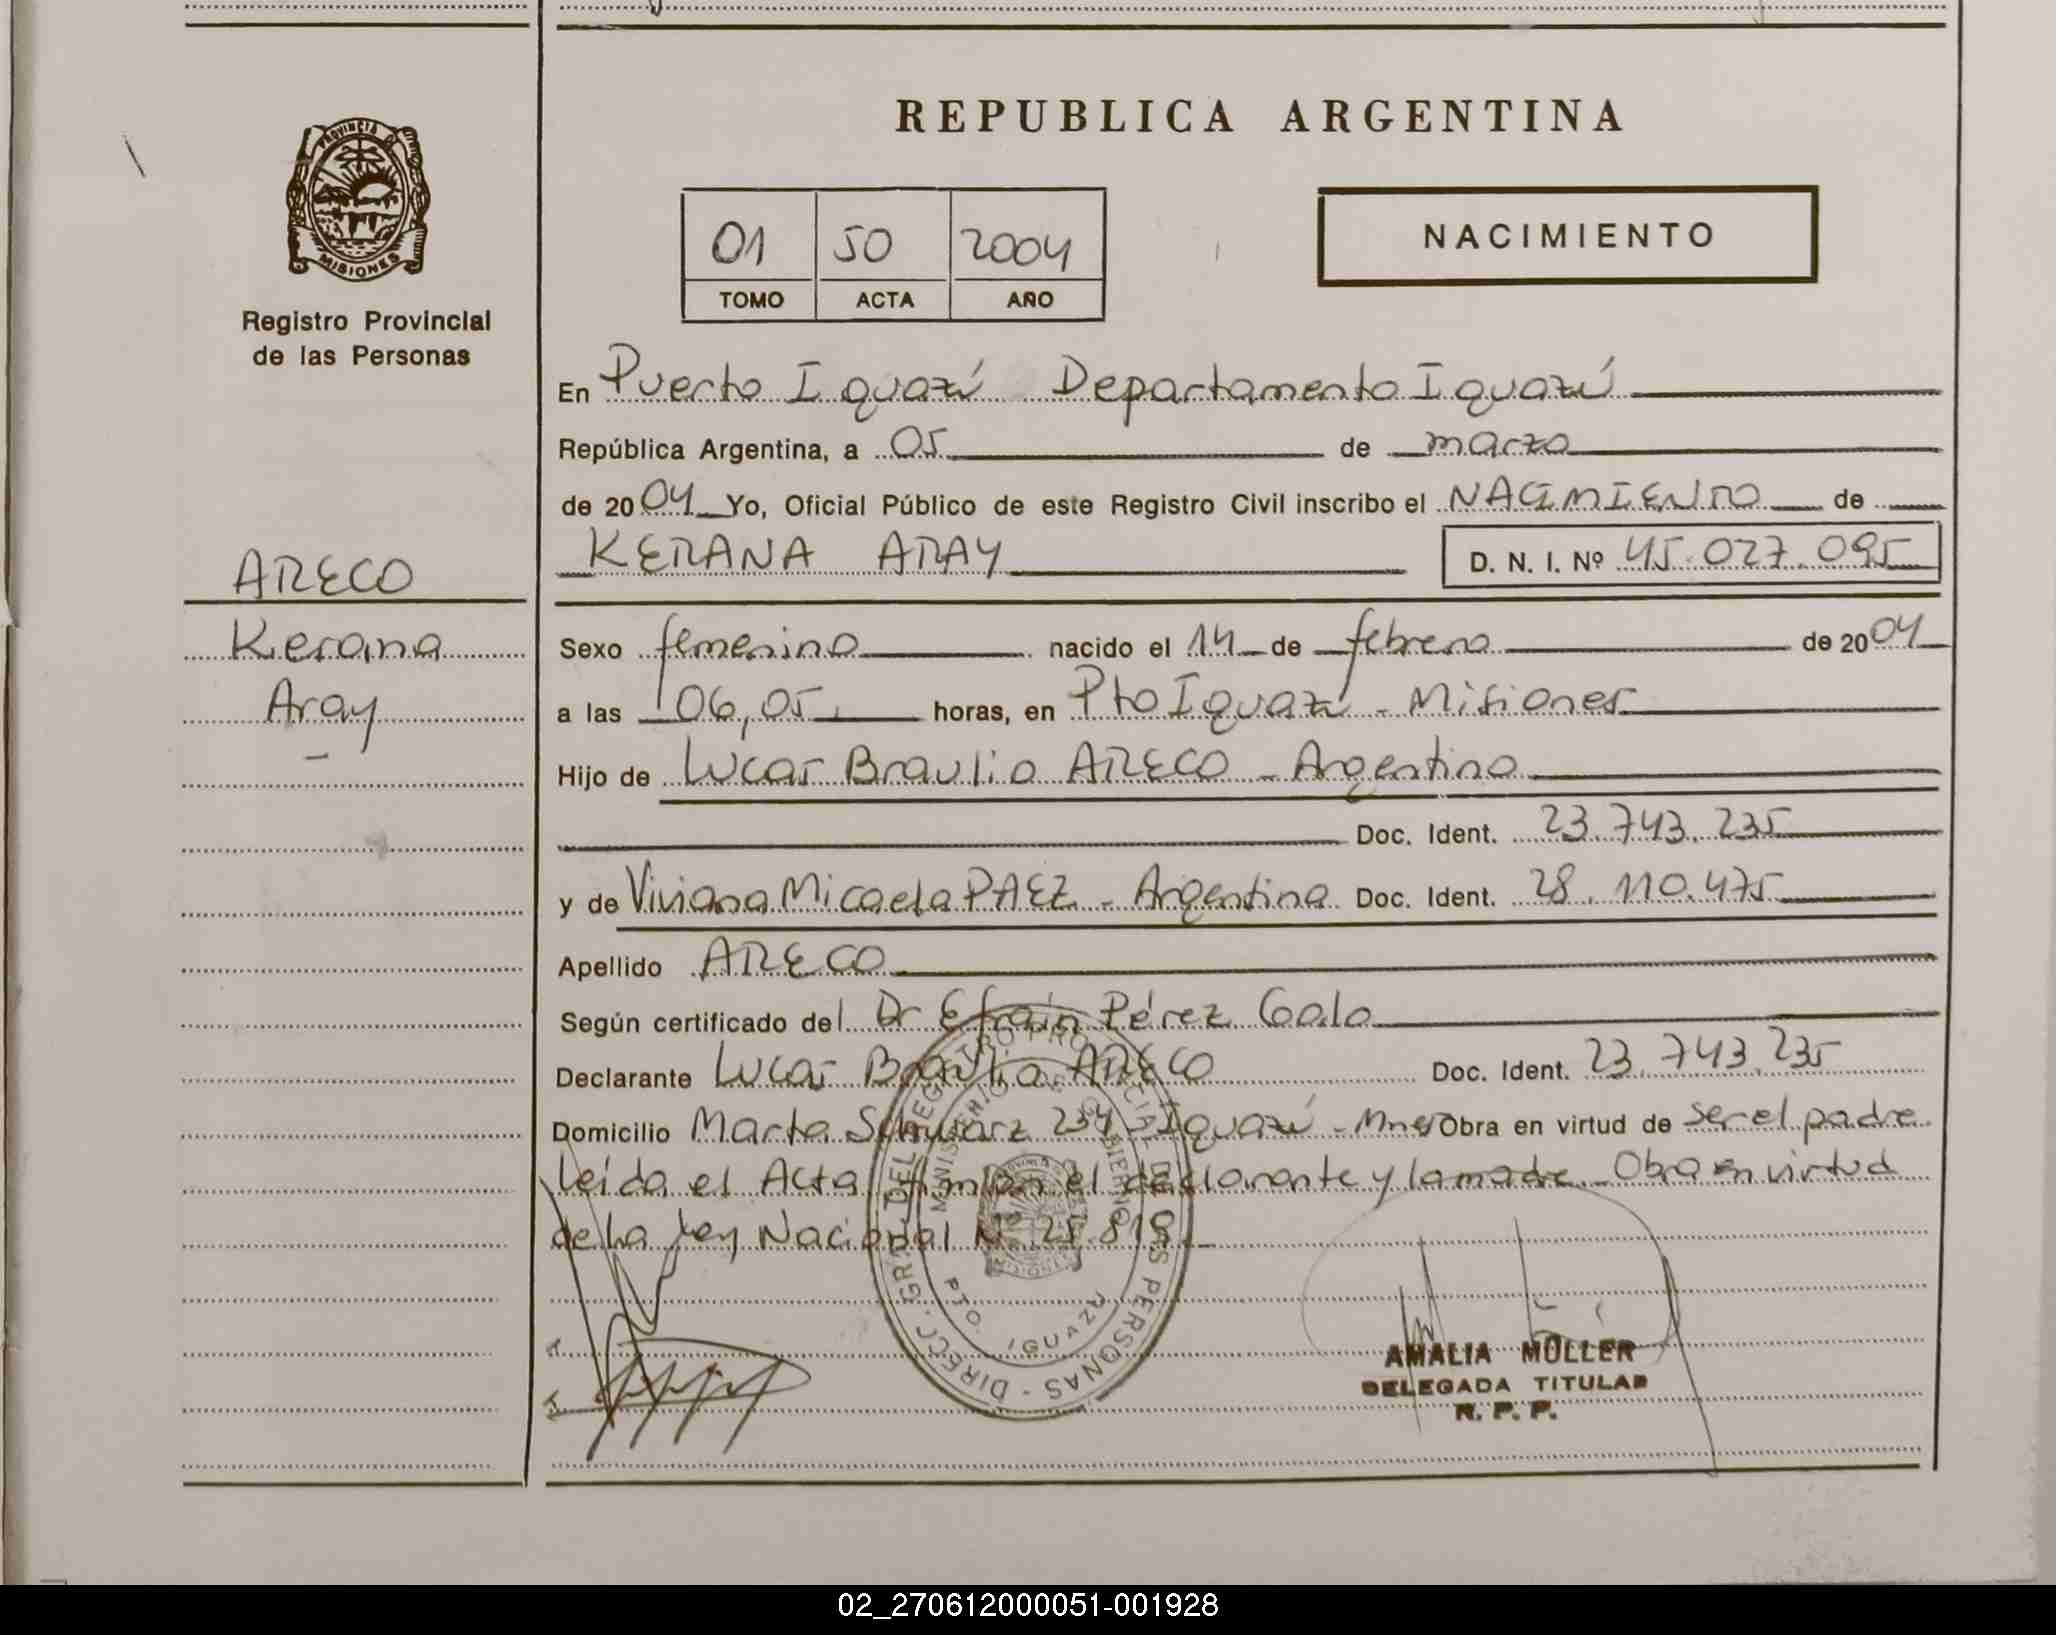 REPUBLICA ARGENTINA
PROVINCIA DE
MISIONES
Registro Provincial
de las Personas
01 50 2004
TOMO ACTA AÑO
NACIMIENTO
En Puerto Iguazú Departamento Iguazú
República Argentina, a 05 de marzo
de 2004 Yo, Oficial Público de este Registro Civil inscribo el NACIMIENTO de
KERANA ARAY D. N. I. Nº 45.027.095
ARECO
Kerana
Aray
Sexo femenino nacido el 14 de febrero de 2004
a las 06,05 horas, en Pto Iguazú - Misiones
Hijo de Lucas Braulio ARECO - Argentino
Doc. Ident. 23.743.235
y de Viviana Micaela PAEZ - Argentina Doc. Ident. 28.110.475
Apellido ARECO
Según certificado del Dr Efraín Pérez Galo
Declarante Lucas Braulio ARECO Doc. Ident. 23.743.235
Domicilio Marta Schwarz 234 Iguazú - Mnes Obra en virtud de ser el padre
leida el Acta firman el declarante y la madre - Obra en virtud
de la Ley Nacional Nº 25.819
DIRECC. GRAL. DEL REGISTRO PROVINCIAL DE LAS PERSONAS
MINISTERIO DE GOBIERNO
MISIONES
PTO. IGUAZU
AMALIA MÜLLER
DELEGADA TITULAR
R. P. P.
02_270612000051-001928